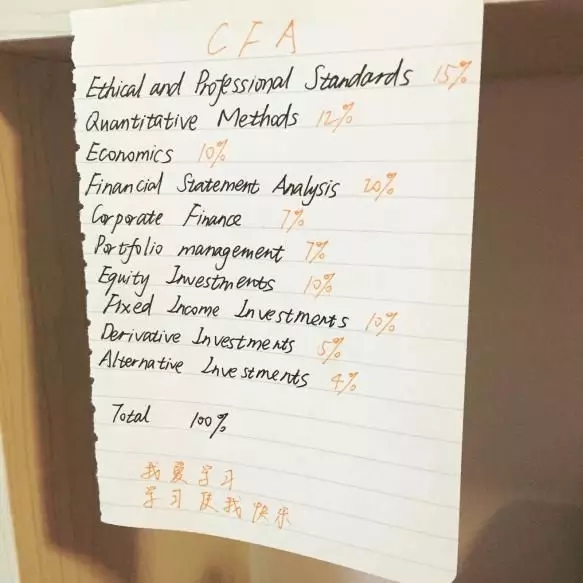 CFA
Ethical and Professional Standards 15%
Quantitative Methods 12%
Economics 10%
Financial Statement Analysis 20%
Corporate Finance 7%
Portfolio management 7%
Equity Investments 10%
Fixed Income Investments 10%
Derivative Investments 5%
Alternative Investments 4%
Total 100%
我爱学习
学习使我快乐